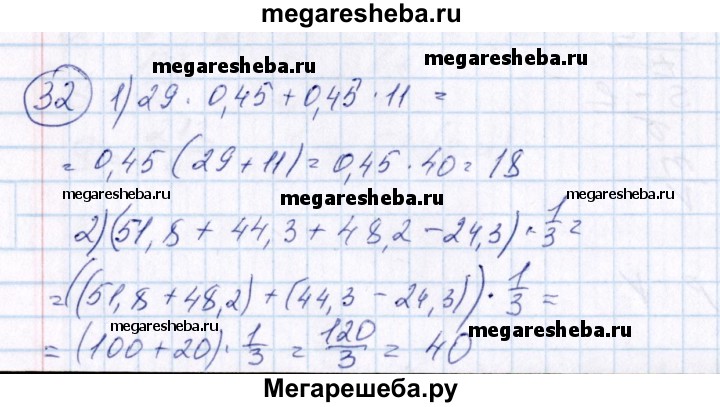 megaresheba.ru
megaresheba.ru megaresheba.ru
32 1) 29 · 0,45 + 0,45 · 11 =
= 0,45 (29 + 11) = 0,45 · 40 = 18
megaresheba.ru megaresheba.ru megaresheba.ru
2) (51,8 + 44,3 + 48,2 - 24,3) · 1/3 =
= ((51,8 + 48,2) + (44,3 - 24,3)) · 1/3 =
megaresheba.ru megaresheba.ru
= (100 + 20) · 1/3 = 120/3 = 40
Мегарешеба.ру